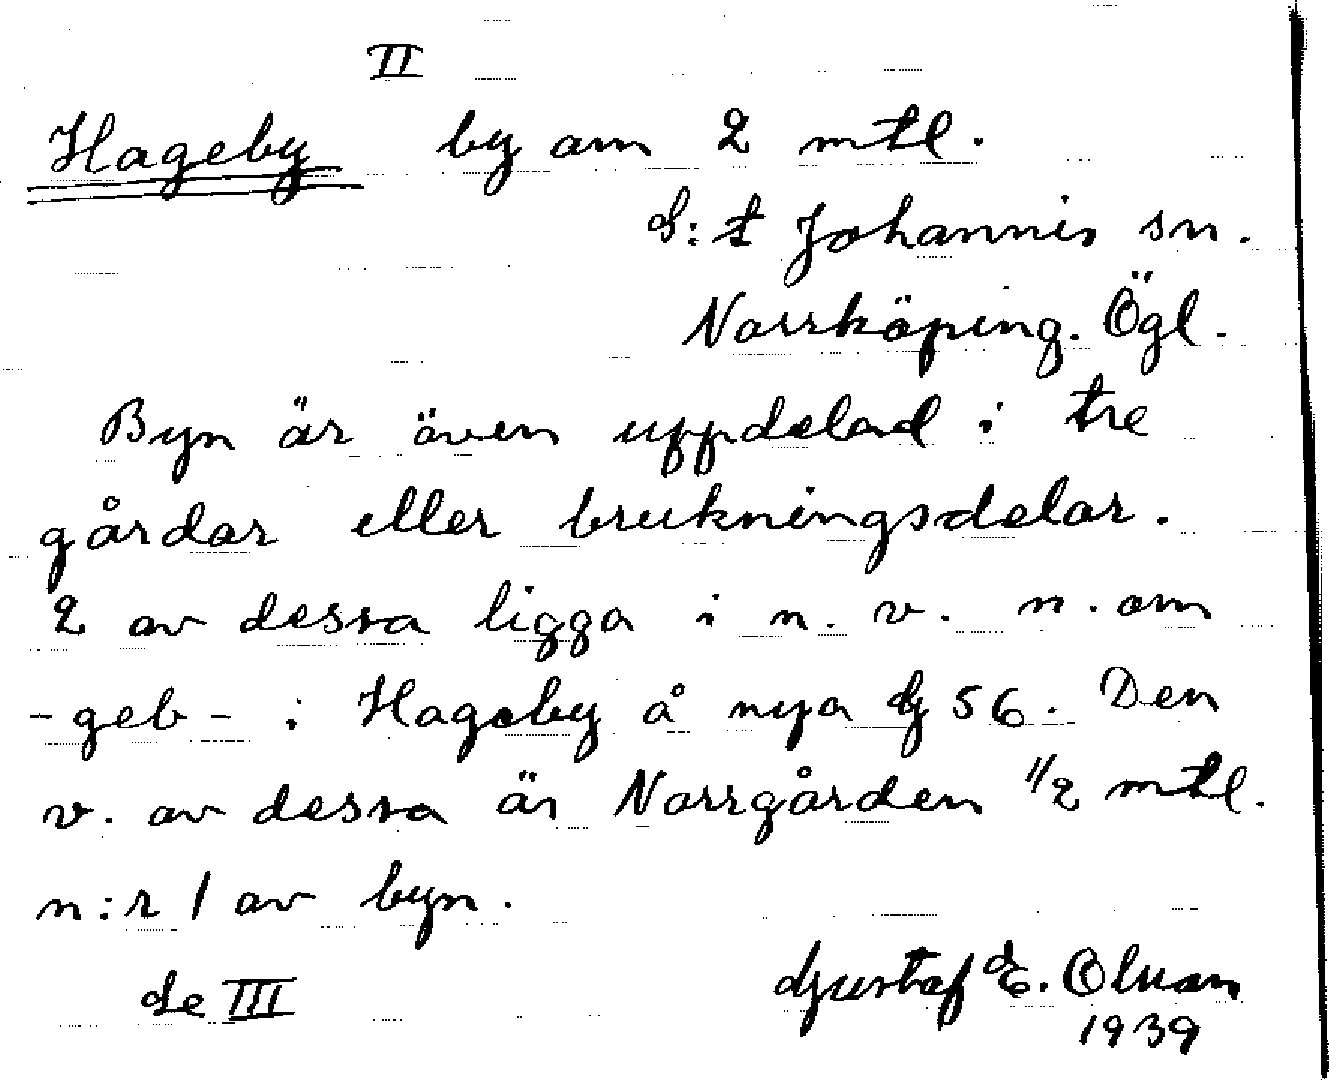 II
Hageby by om 2 mtl.
S:t Johannis sn.
Norrköping. Ögl.
Byn är även uppdelad i tre
gårdar eller brukningsdelar.
2 av dessa ligga i n. v. n. om
-geb- i Hageby å nya bj 56. Den
v. av dessa är Norrgården 1/2 mtl.
n:r 1 av byn.
Se III
Gustaf E. Olsson
1939